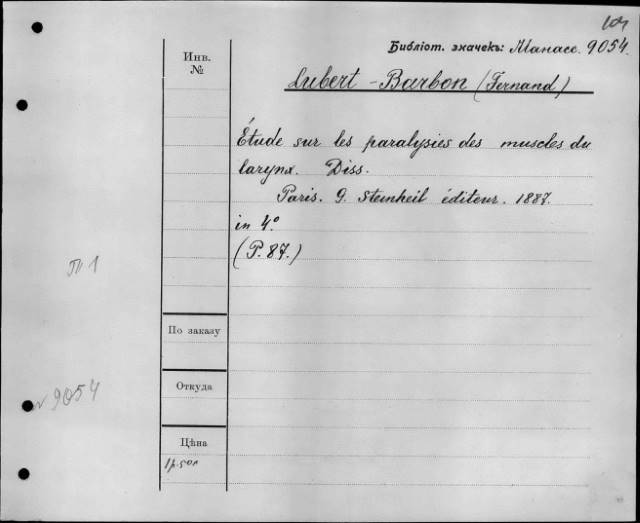 Библіот. значекъ: Manace. 9054.
Инв.
№
Lubert-Barbon (Fernand)
Étude sur les paralysies des muscles du
larynx. Diss.
Paris. G. Steinheil éditeur. 1887.
in 4.°
(P. 87.)
П 1
По заказу
9054
Откуда
Цѣна